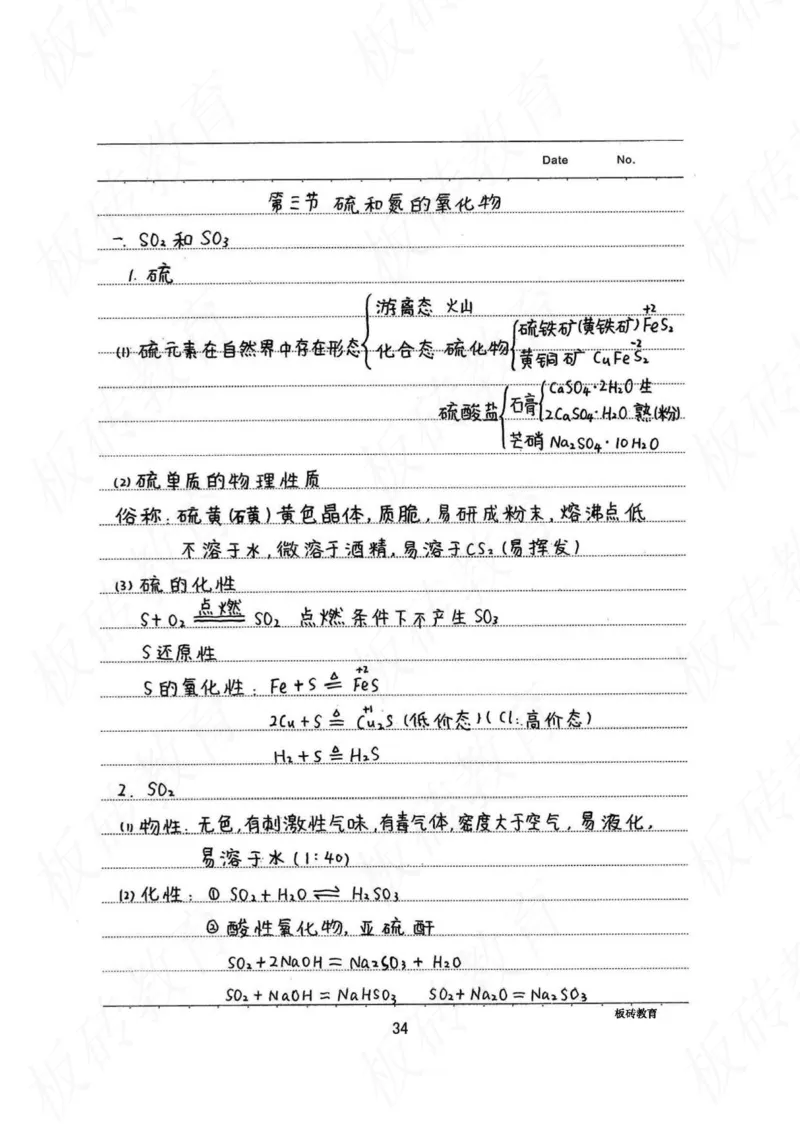 Date No.
第三节 硫和氮的氧化物
一. SO₂和SO₃
1. 硫
游离态 火山
(1) 硫元素在自然界中存在形态 化合态 硫化物 硫铁矿(黄铁矿) Fe⁺²S₂
黄铜矿 CuFeS⁻²₂
硫酸盐 石膏 CaSO₄·2H₂O 生
2CaSO₄·H₂O 熟(粉)
芒硝 Na₂SO₄·10H₂O
(2) 硫单质的物理性质
俗称: 硫黄(硫磺) 黄色晶体, 质脆, 易研成粉末, 熔沸点低
不溶于水, 微溶于酒精, 易溶于CS₂ (易挥发)
(3) 硫的化性
S + O₂ 点燃 SO₂ 点燃条件下不产生SO₃
S还原性
S的氧化性: Fe + S ≜ Fe⁺²S
2Cu + S ≜ Cu⁺¹₂S (低价态) (Cl: 高价态)
H₂ + S ≜ H₂S
2. SO₂
(1) 物性: 无色, 有刺激性气味, 有毒气体, 密度大于空气, 易液化,
易溶于水 (1:40)
(2) 化性: ① SO₂ + H₂O ⇌ H₂SO₃
② 酸性氧化物, 亚硫酐
SO₂ + 2NaOH = Na₂SO₃ + H₂O
SO₂ + NaOH = NaHSO₃ SO₂ + Na₂O = Na₂SO₃
板砖教育
34